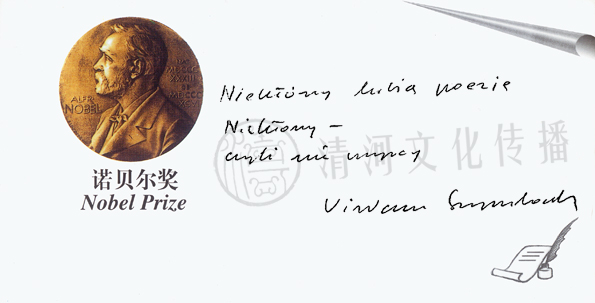 ALFR. NOBEL
诺贝尔奖
Nobel Prize
Niektórzy lubią poezję
Niektórzy –
czyli nie wszyscy
Wisława Szymborska
清河文化传播